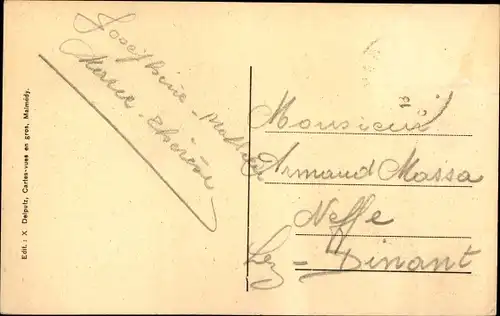 Joséphine - Mathieu
Marie - Etienne
Monsieur
Armand Massa
Neffe
Lez - Dinant
Edit. : X Delputz, Cartes-vues en gros, Malmédy.